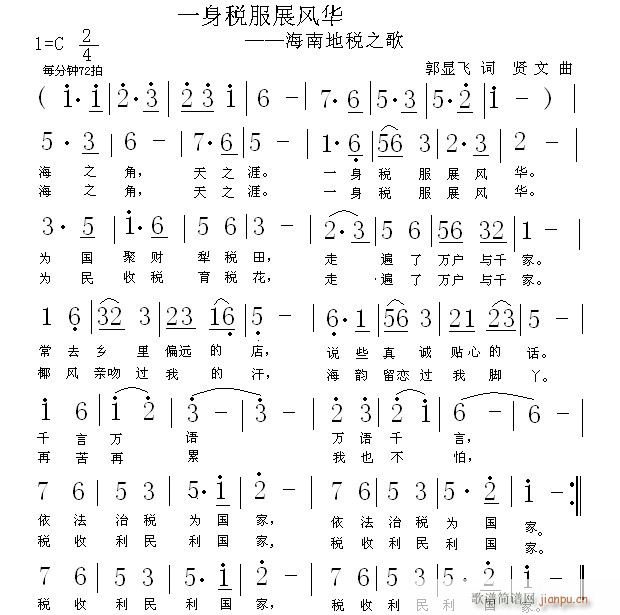 一身税服展风华
1=C 2/4 ——海南地税之歌
每分钟72拍 郭显飞 词 贤文 曲
( i·i | 2·3 | 2·i | 6 - | 7·6 | 5·3 | 5·2 | i - )
5·3 | 6 - | 7·6 | 5 - | 1·6 | 56 3 | 2·3 | 2 -
海之角， 天之涯。 一身税服展风华。
海之角， 天之涯。 一身税服展风华。
3·5 | i·6 | 5 6 | 3 - | 2·3 | 5 6 | 56 32 | 1 -
为国聚财犁税田， 走遍了万户与千家。
为民收税育税花， 走遍了万户与千家。
1 6 | 32 3 | 22 16 | 5 - | 6·1 | 56 3 | 21 23 | 5 -
常去乡里偏远的店， 说些真诚贴心的话。
椰风亲吻过我的汗， 海韵留恋过我脚丫。
i 6 | i 2 | 3 - | 3 - | 2 3 | 2 i | 6 - | 6 -
千言万语 万语千言，
再苦再累 我也不怕，
7 6 | 5 3 | 5·i | 2 - | 7 6 | 5 3 | 5·2 | i - :||
依法治税为国家， 依法治税为国家。
税收利民利国家， 税收利民利国家。
7 6 | 5 3 | 5·i | 2 - | 7 6 | 5 3 | 5·2 | i -
税收利民利国家， 税收利民利国
歌谱简谱网
jianpu.cn